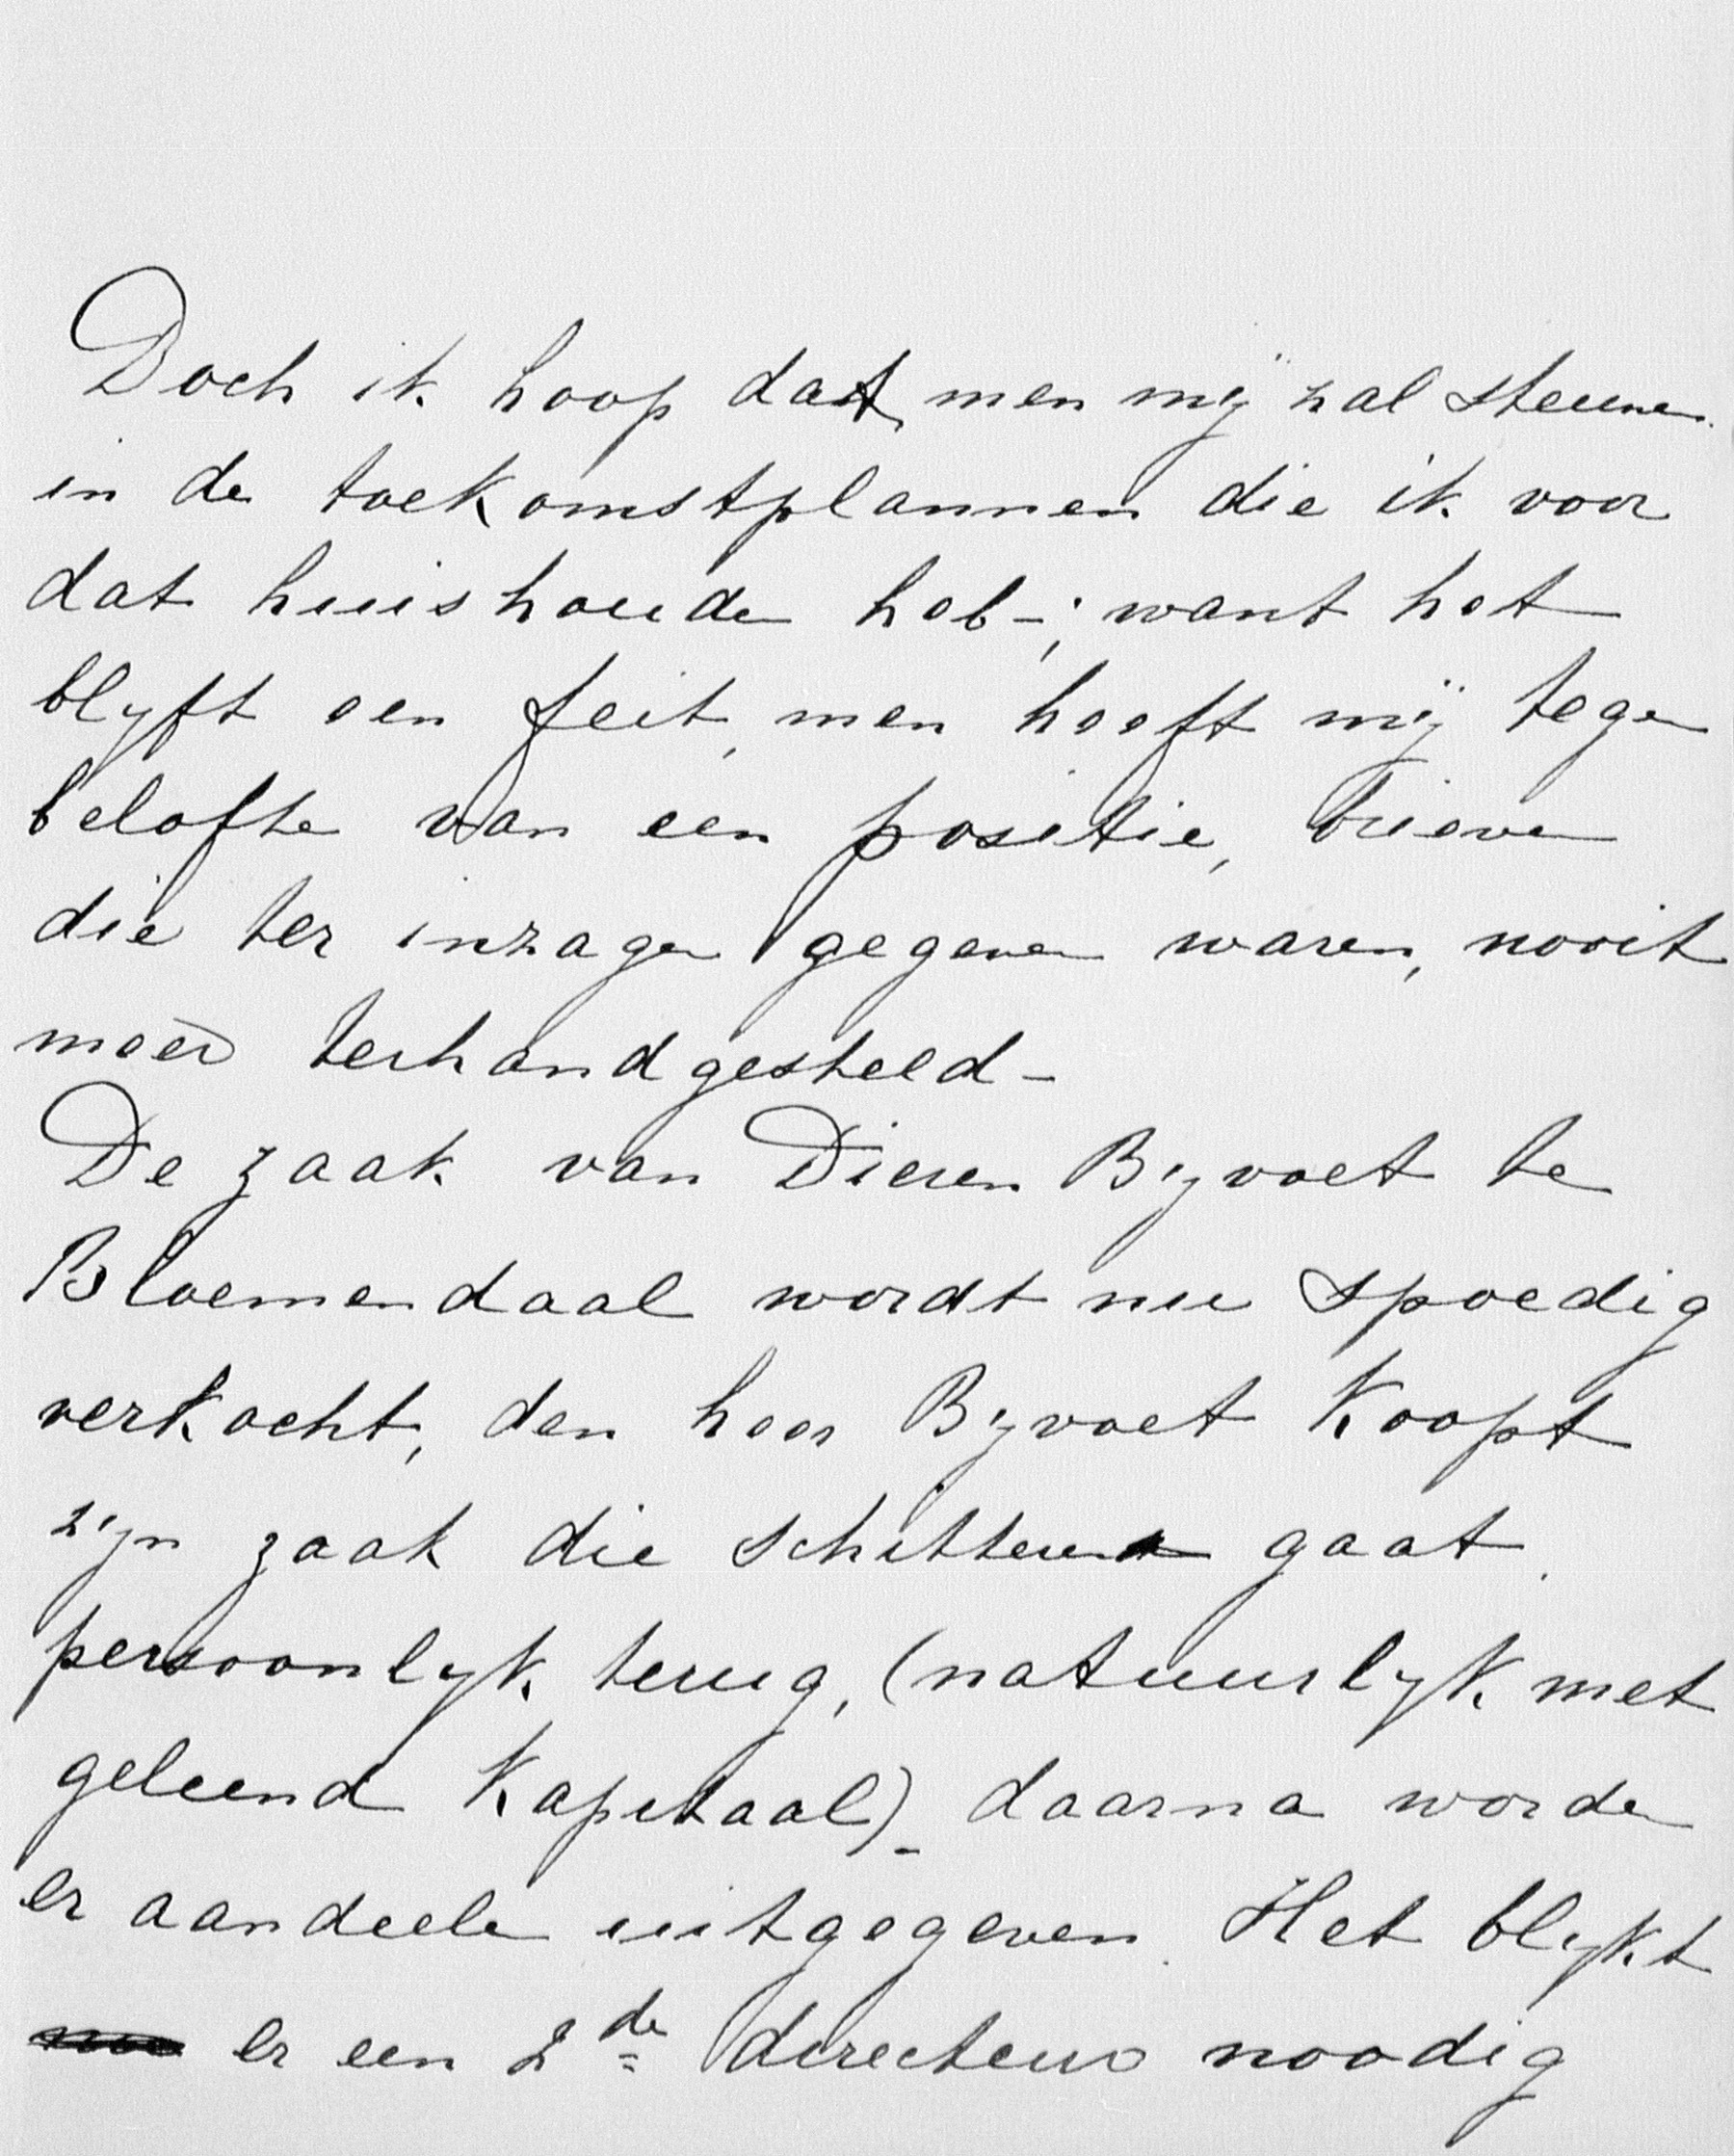 Doch ik hoop dat men mij zal steunen
in de toekomstplannen die ik voor
dat huishouden heb -; want het
blyft een feit, men heeft mij tegen
belofte van een positie, brieven
die ter inzage gegeven waren, nooit
meer terhandgesteld -
De zaak van Dieren Byvoet te
Bloemendaal wordt nu spoedig
verkocht, den heer Byvoet koopt
zijn zaak die schitterend gaat
persoonlyk terug, (natuurlyk met
geleend kapitaal) - daarna worden
er aandeelen uitgegeven. Het blykt
er een 2de directeur noodig